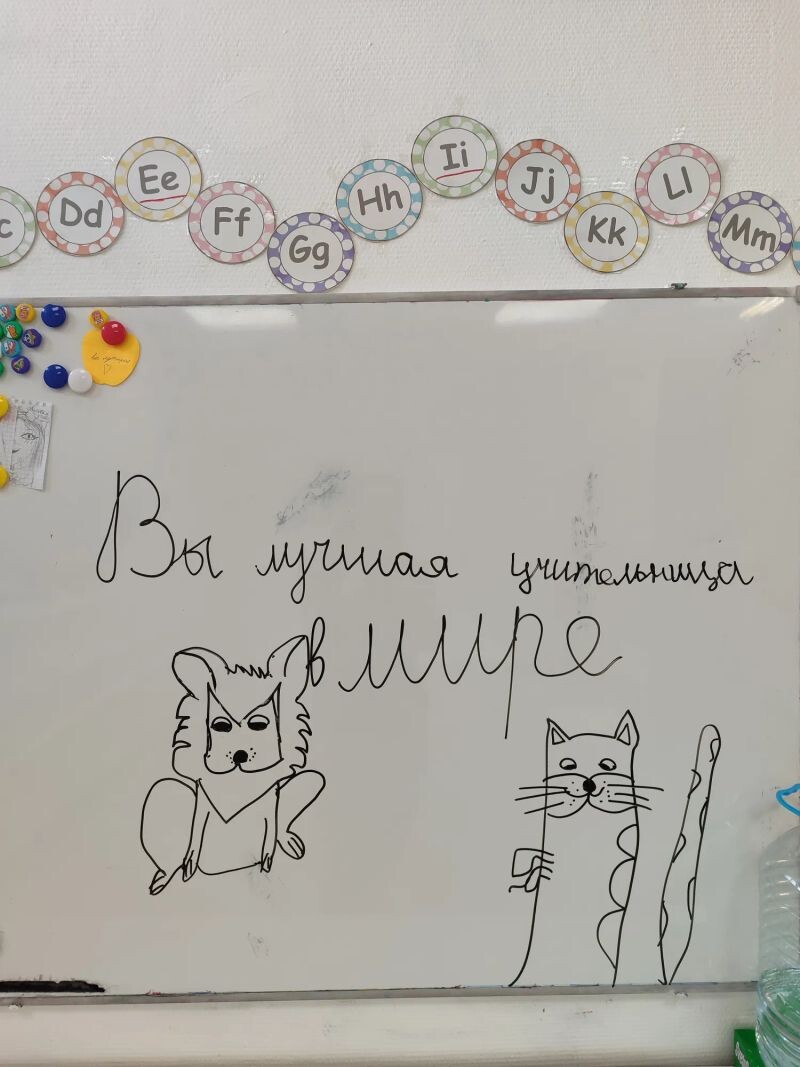 c
Dd
Ee
Ff
Gg
Hh
Ii
Jj
Kk
Ll
Mm
Вы лучшая учительница
в мире